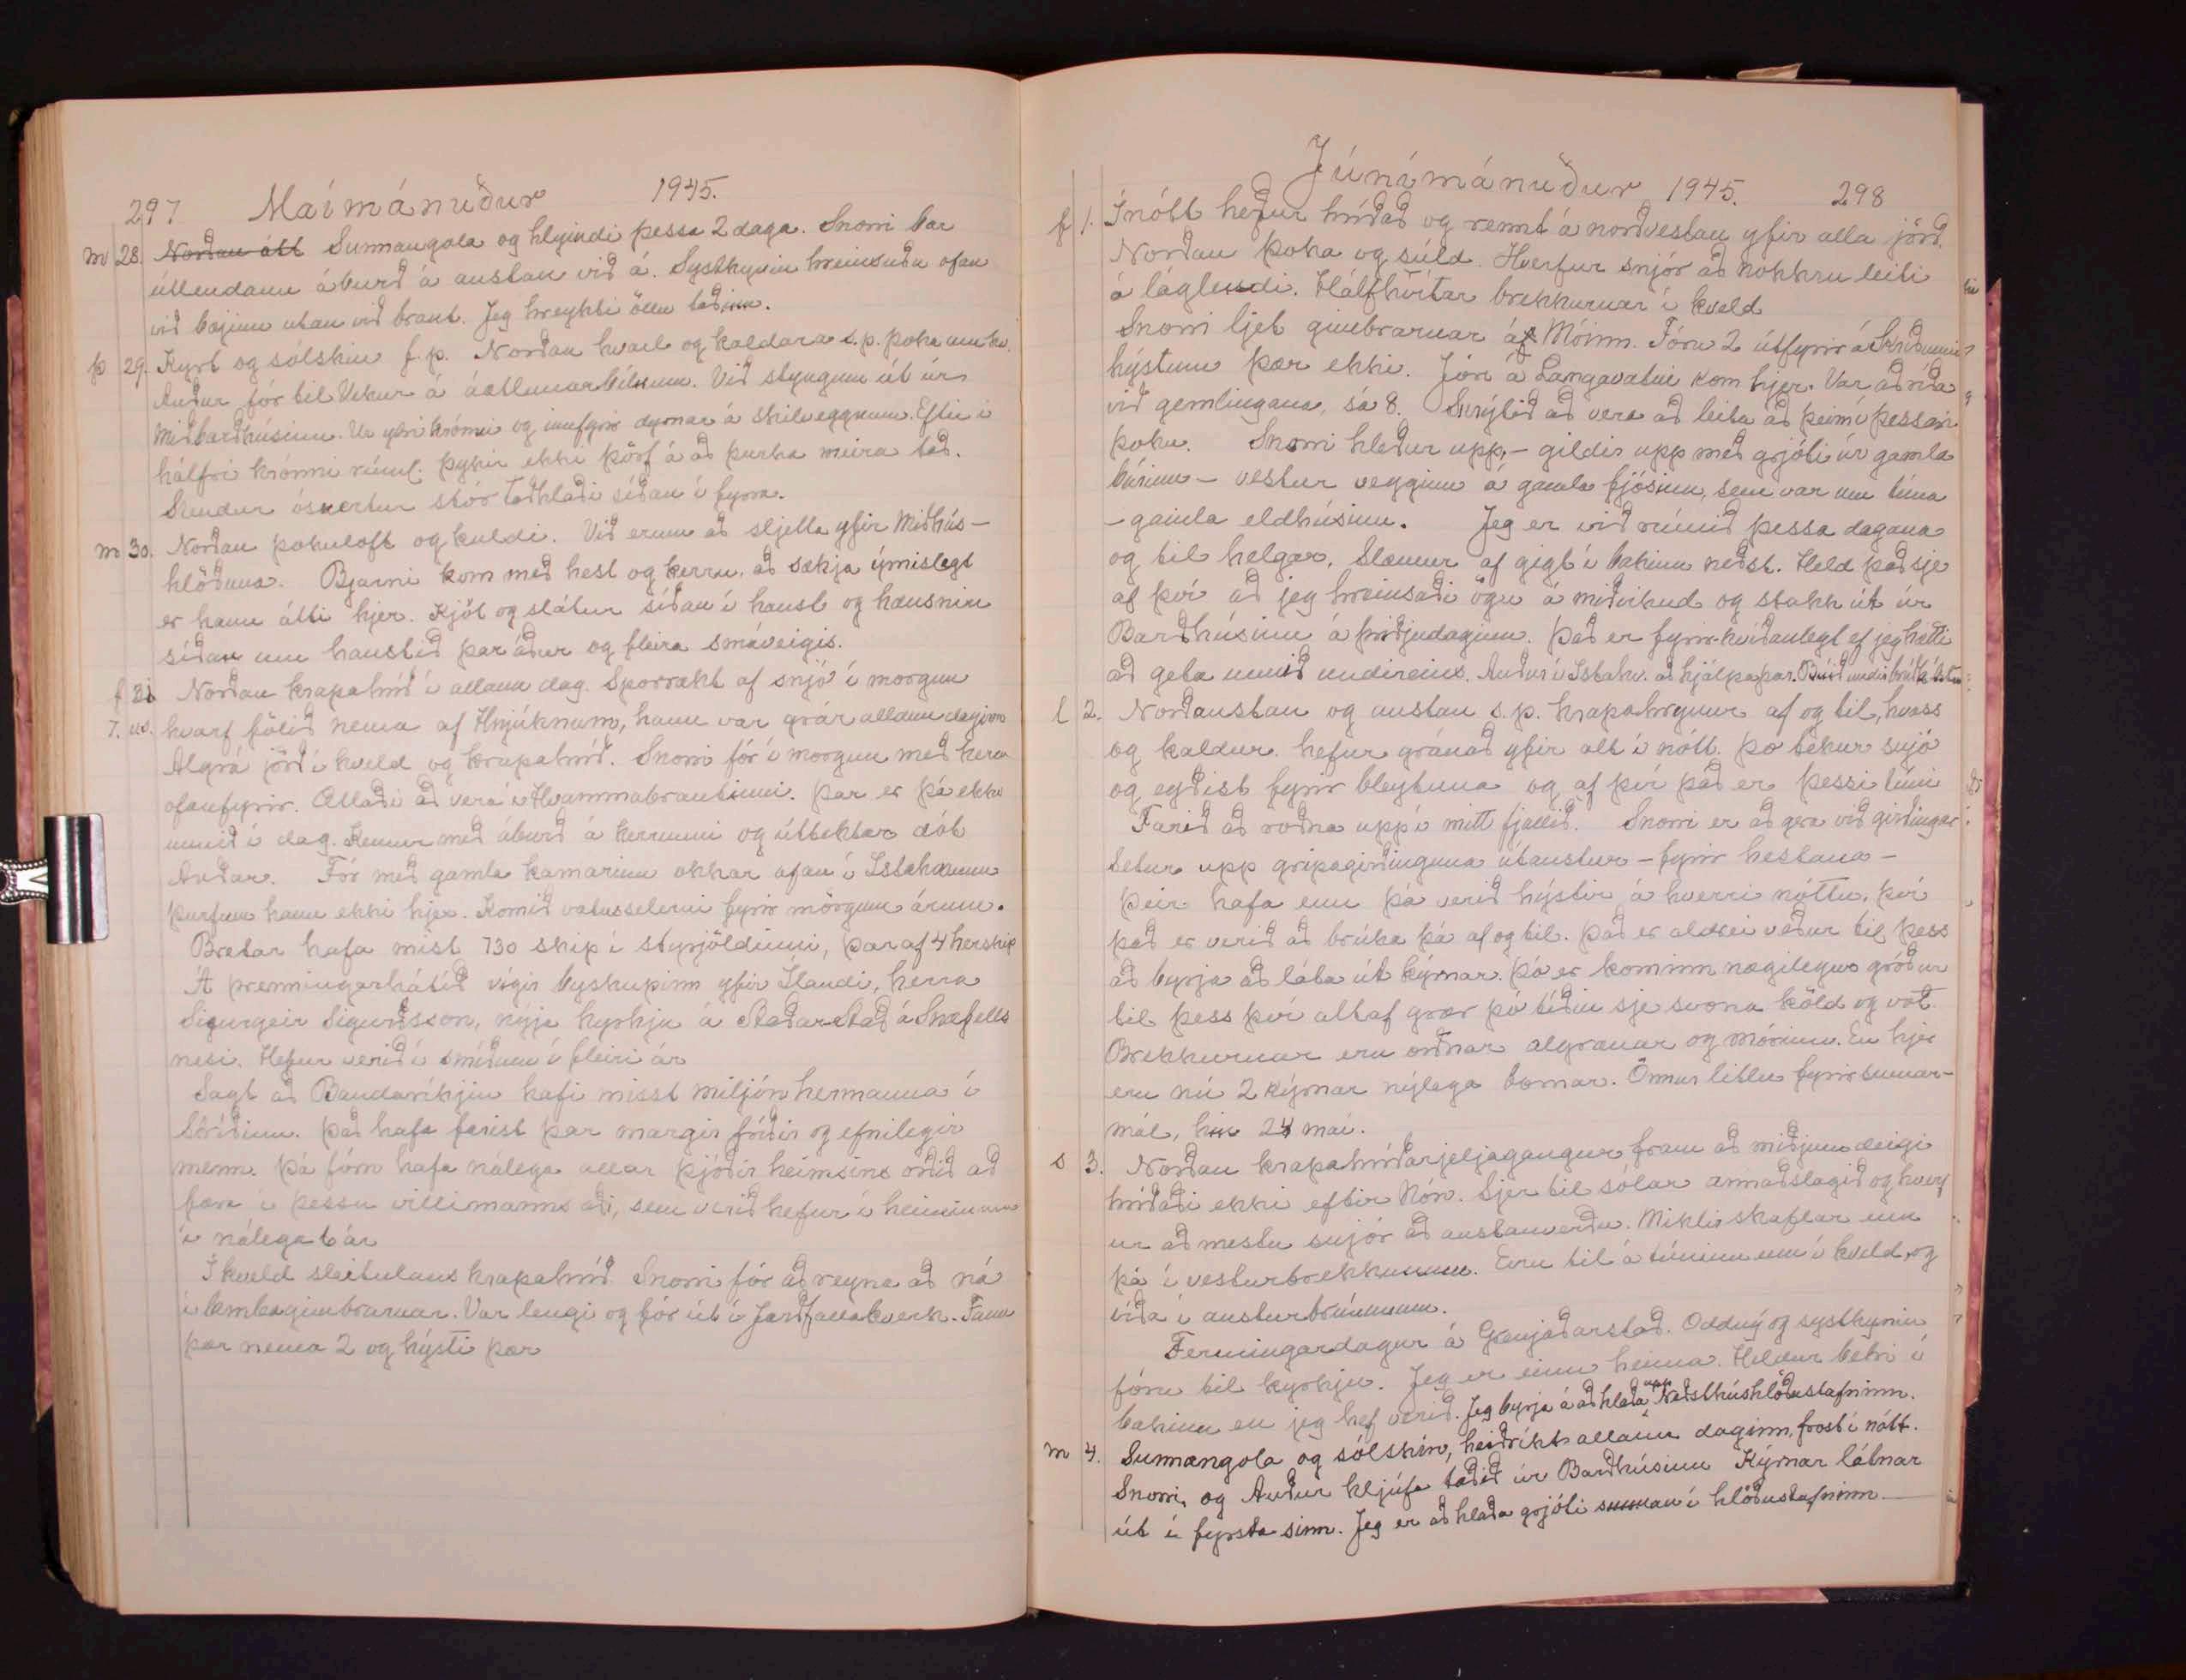 297 Maímánuður 1945.
m 28. Norðan átt Sunnangola og hlyindi þessa 2 daga. Snorri bar
útlendann áburð á austan við á. Systkynin hreinsuðu ofan
við bæjinn utan við braut. Jeg hreykti öllu taðinu.
þ 29. Kyrt og sólskin f.p. Norðan kvael og kaldara s.p. þoka um kv.
Auður fór til Vikur á áætlunarbílnum. Við styngum út úr
Miðbarðhúsinu. Úr ytri krónni og innfyrir dyrnar á skilveggnum. Eftir í
hálfri krónni rúml. þykir ekki þörf á að þurka meira tað.
Stendur ósnertur stór taðhlaði síðan í fyrra.
m 30. Norðan þokuloft og kuldi. Við erum að sljetta yfir Miðhús-
hlöðuna. Bjarni kom með hest og kerru að sækja ýmislegt
er hann átti hjer. Kjöt og slátur síðan í haust og hausnin
síðan um haustið þar áður og fleira smáveigis.
f 31 Norðan krapahríð í allann dag. Sporrakt af snjó í morgun
7. us. hvarf fölið nema af Hnjúknum, hann var grár alldan daginn
Algrá jörð í kveld og krapahríð. Snorri fór í morgun með kerru
ofanfyrir. Ætlaði að vera í Hvammabrautinni. Þar er þá ekki
unnið í dag. Kemur með áburð á kerrunni og úttektar dót
Auðar. Fór með gamla kamarinn okkar ofan í Ístahvamm
þurfum hann ekki hjer. Komið vatnsselerni fyrir mörgum árum.
Bretar hafa mist 730 skip í styrjöldinni, þar af 4 herskip
Á þrenningarhátíð vígir byskupinn yfir Íslandi, herra
Sigurgeir Sigurðsson, nýja kyrkju á Staðarstað á Snæfells
nesi. Hefur verið í smíðum í fleiri ár
Sagt að Bandaríkjin hafi misst miljón hermanna í
stríðinu. Það hafa farist þar margir fríðir og efnilegir
menn. Þá fórn hafa nálega allar þjóðir heimsins orðið að
færa í þessu villimanns æði, sem verið hefur í heiminum
í nálega 6 ár
Í kveld slaitulaus krapahríð. Snorri fór að reyna að ná
í lembagimbrarnar. Var lengi og fór út í Jarðfallakverk. Fann
þær nema 2 og hýsti þær
Júnímánuður 1945. 298
f 1. Í nótt hefur hríðað og rennt á norðvestan yfir alla jörð.
Norðan þoka og súld. Hverfur snjór að nokkru leiti
á láglendi. Hálfhvítar brekkurnar í kveld
Snorri ljet gimbrarnar á Móinn. Fóru 2 útfyrir á Skriðunni
hýstum þær ekki. Jón á Langavatni kom hjer. Var að ríða
við gemlingana, sá 8. Snúýtið að vera að leita að þeim í þessari
þoku. Snorri hleður upp, - gildir upp með grjóti úr gamla
búrinu - vestur vegginn á gamla fjósinu, sem var um tíma
- gamla eldhúsinu. Jeg er við rúmið þessa dagana
og til helgar, Slæmur af gigt í bakinu neðst. Held það sje
af því að jeg hreinsaði ögn á miðvikud og stakk út úr
Barðhúsinu á þriðjudaginn. Það er fyrir-kvíðanlegt ef jeg hætti
að geta unnið undireins. Auður í Ístahv. að hjálpa þar.
l 2. Norðaustan og austan s.p. krapahrynur af og til, hvass
og kaldur. hefur gránað yfir alt í nótt. Þo tekur snjó
og eyðist fyrir bleytuna og af því það er þessi tími
Farið að roðna upp í mitt fjallið. Snorri er að gera við girðingar
Setur upp gripagirðinguna útaustur - fyrir hestana -
Þeir hafa enn þá verið hýstir á hverri nóttu, því
það er verið að brúka þá af og til. Það er aldrei veður til þess
að byrja að láta út kýrnar. Þó er kominn nægilegur gróður
til þess því altaf grær þó tíðin sje svona köld og vot.
Brekkurnar eru orðnar algrænar og mórinn. En hjer
eru nú 2 kýrnar nýlega bornar. Önnur litlu fyrir sumar-
mál, hin 24 maí.
s 3. Norðan krapahríðarjeljagangur fram að miðjum deigi
hríðaði ekki eftir Nón. Sjer til sólar annaðslagið og hverf
ur að mestu snjór að austanverðu. Miklir skaflar enn
þá í vesturbrekkunum. Eru til á túninu enn í kveld, og
víða í austurbrúnunum.
Fermingardagur á Grenjaðarstað. Oddný og systkynin
fóru til kyrkju. Jeg er einn heima. Heldur betri í
bakinu en jeg hef verið. Jeg byrja á að hlaða upp Neðsthúshlöðustafninn.
m 4. Sunnangola og sólskin, heiðríkt allann daginn, frost í nótt.
Snorri og Auður kljúfa taðið úr Barðhúsinu Kýrnar látnar
út í fyrsta sinn. Jeg er að hlaða grjóti sunnan í hlöðustafninn